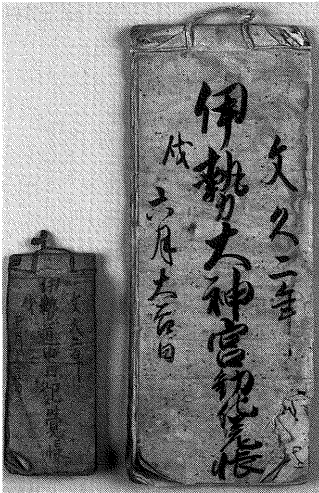 文久二年
伊勢大神宮勧化覚帳
戌 六月大吉日
文久二年
伊勢道中日記覚帳